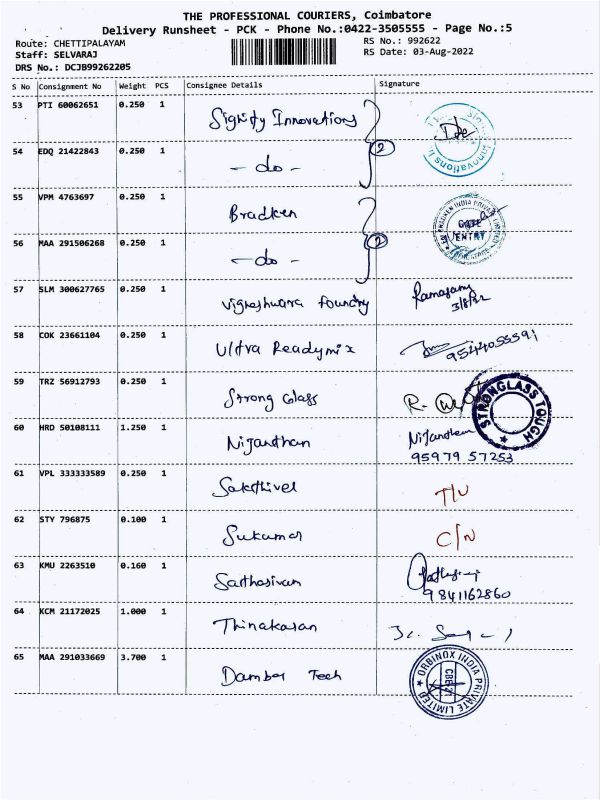 THE PROFESSIONAL COURIERS, Coimbatore
Delivery Runsheet - PCK - Phone No.:0422-3505555 - Page No.:5
Route: CHETTIPALAYAM RS No.: 992622
Staff: SELVARAJ RS Date: 03-Aug-2022
DRS No.: DCJB99262205
S No Consignment No Weight PCS Consignee Details Signature
53 PTI 60062651 0.250 1 Signify Innovations
54 EDQ 21422843 0.250 1 - do - 2
55 VPM 4763697 0.250 1 Bradken
GATE
ENTRY
56 MAA 291506268 0.250 1 - do - 2
57 SLM 300627765 0.250 1 Vigneshwara foundry Ramasamy
3/8/22
58 COK 23661104 0.250 1 Ultra Readymix 9544055591
59 TRZ 56912793 0.250 1 Strong Glass R.
STRONGLASS TOUGH
60 HRD 50108111 1.250 1 Nijandhan Nijandhan
95979 57253
61 VPL 333333589 0.250 1 Sakthivel T/U
62 STY 796875 0.100 1 Sukumar C/N
63 KMU 2263510 0.160 1 Sarthasivam
9841162860
64 KCM 21172025 1.000 1 Thinakaran
65 MAA 291033669 3.700 1 Damber Tech
ORBINOX INDIA PRIVATE LIMITED